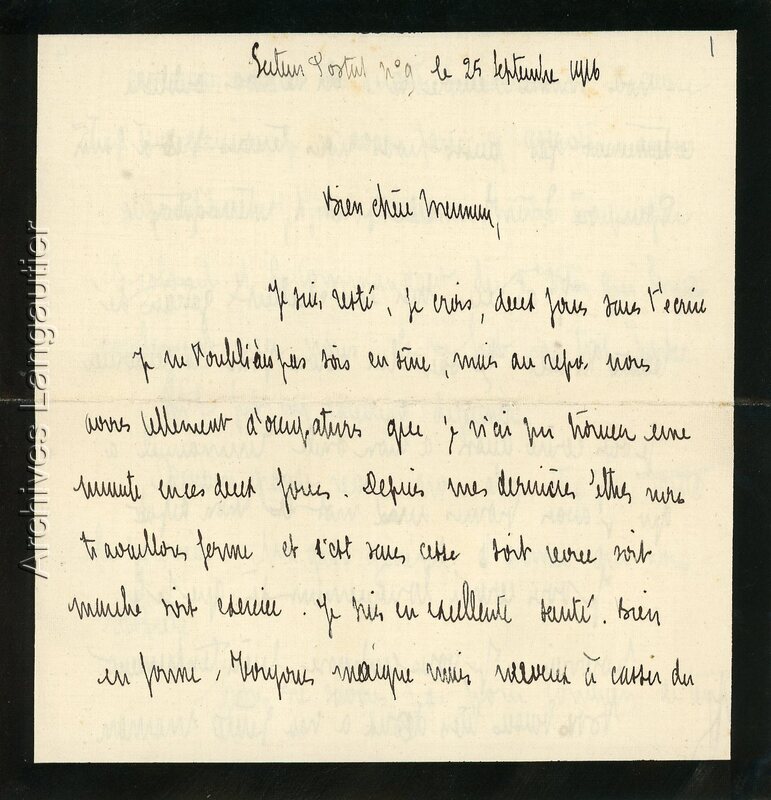 1
Secteur Postal n°9 le 25 Septembre 1916
Bien chère Meman,
Je suis resté, je crois, deux jours sans t'écrire
Je ne t'oubliais pas sois en sûre, mais au repos nous
avons tellement d'occupations que je n'ai pu trouver une
minute en ces deux jours. Depuis mes dernières lettres nous
travaillons ferme et c'est sans cesse soit revue soit
marche soit exercice. Je suis en excellente santé. Bien
en forme, Toujours maigre mais nerveux à casser du
Archives Langautier